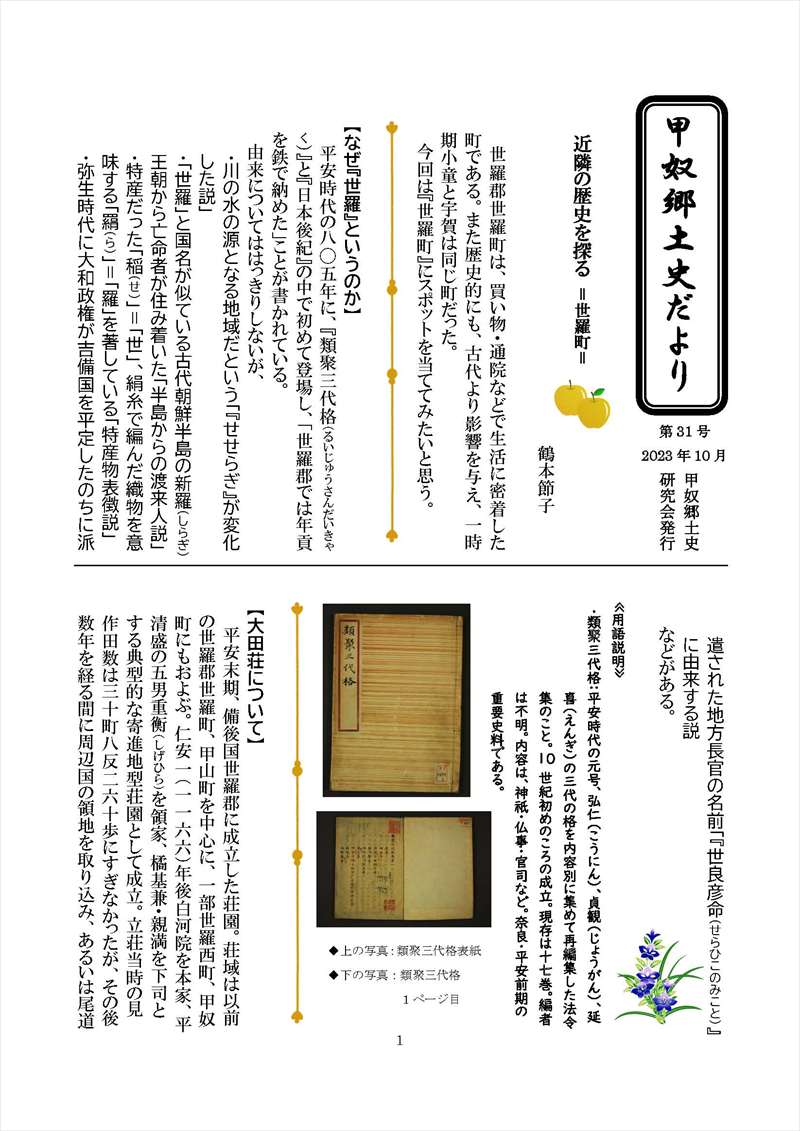 甲奴郷土史だより
第31号
2023年10月
甲奴郷土史
研究会発行
近隣の歴史を探る ＝世羅町＝
鶴本節子
世羅郡世羅町は、買い物・通院などで生活に密着した
町である。また歴史的にも、古代より影響を与え、一時
期小童と宇賀は同じ町だった。
今回は『世羅町』にスポットを当ててみたいと思う。
【なぜ『世羅』というのか】
平安時代の八〇五年に、『類聚三代格(るいじゅうさんだいきゃ
く)』と『日本後紀』の中で初めて登場し、「世羅郡では年貢
を鉄で納めた」ことが書かれている。
由来についてははっきりしないが、
・川の水の源となる地域だという『せせらぎ』が変化
した説」
・「世羅」と国名が似ている古代朝鮮半島の新羅(しらぎ)
王朝から亡命者が住み着いた「半島からの渡来人説」
・特産だった「稲(せ)」＝「世」、絹糸で編んだ織物を意
味する「羂(ら)」＝「羅」を著している「特産物表徴説」
・弥生時代に大和政権が吉備国を平定したのちに派
遣された地方長官の名前「『世良彦命(せらひこのみこと)』
に由来する説
などがある。
《用語説明》
・類聚三代格:平安時代の元号、弘仁(こうにん)、貞観(じょうがん)、延
喜(えんぎ)の三代の格を内容別に集めて再編集した法令
集のこと。10世紀初めのころの成立。現存は十七巻。編者
は不明。内容は、神祇・仏事・官司など。奈良・平安前期の
重要史料である。
類聚三代格
◆上の写真:類聚三代格表紙
◆下の写真:類聚三代格
1ページ目
【大田荘について】
平安末期、備後国世羅郡に成立した荘園。荘域は以前
の世羅郡世羅町、甲山町を中心に、一部世羅西町、甲奴
町にもおよぶ。仁安一(一一六六)年後白河院を本家、平
清盛の五男重衡(しげひら)を領家、橘基兼・親満を下司と
する典型的な寄進地型荘園として成立。立荘当時の見
作田数は三十町八反二六十歩にすぎなかったが、その後
数年を経る間に周辺国の領地を取り込み、あるいは尾道
1